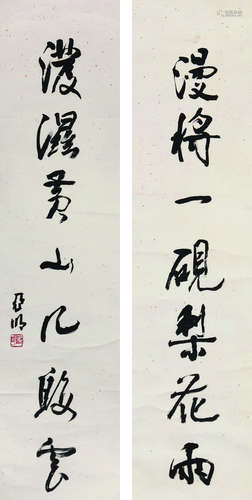 漫将一砚梨花雨
泼湿黄山几段云
亚明